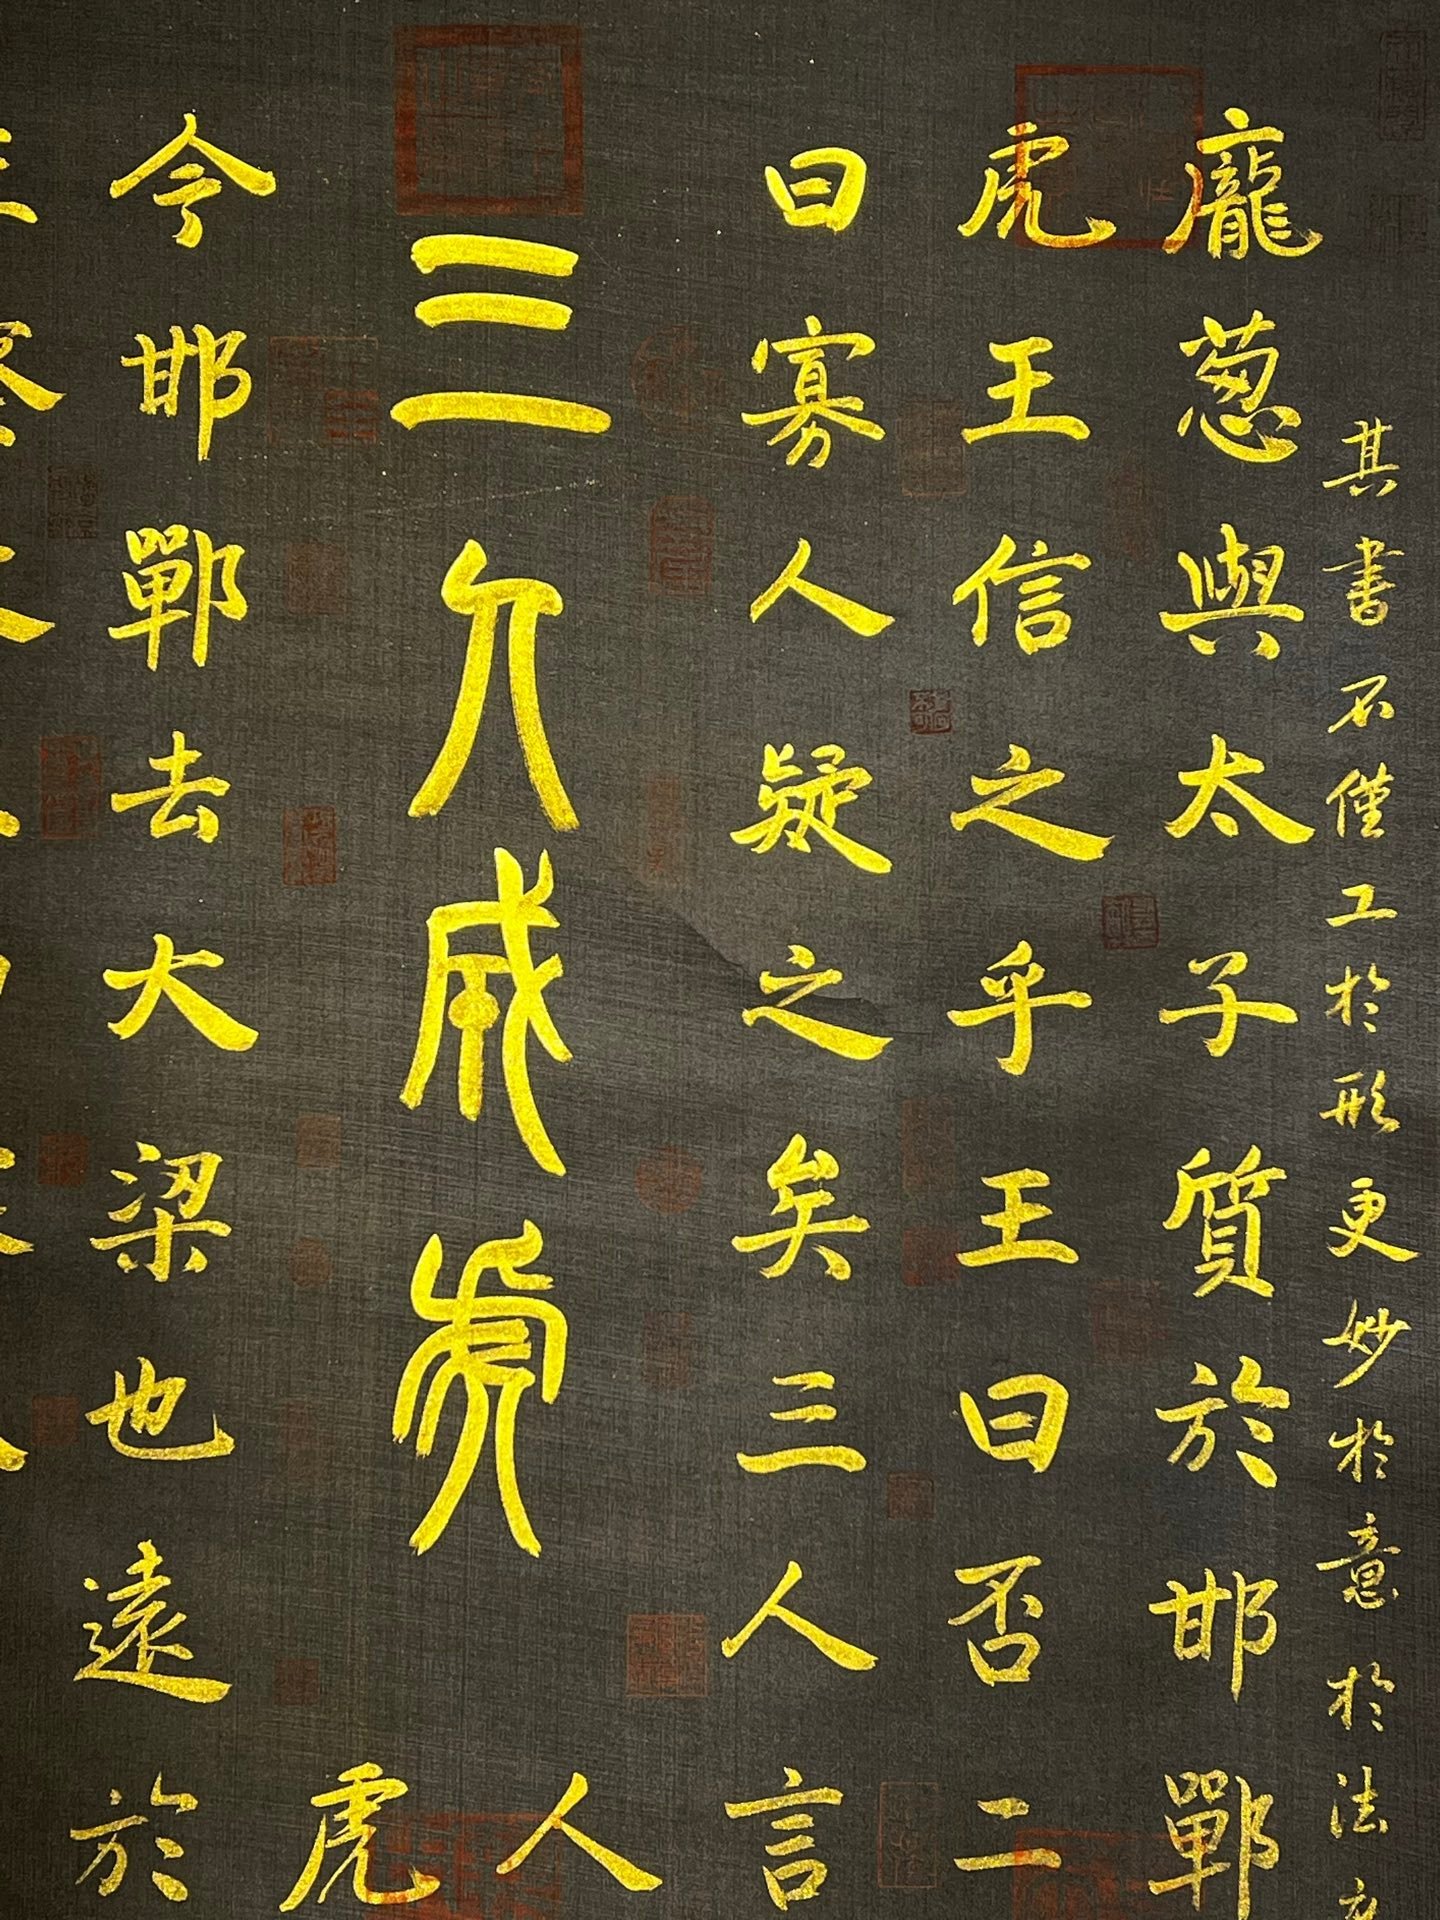 其書不僅工於形更妙於意於法
龐葱與太子質於邯鄲
虎王信之乎王曰否二
曰寡人疑之矣三人言
三人成虎
人
虎
今邯鄲去大梁也遠於